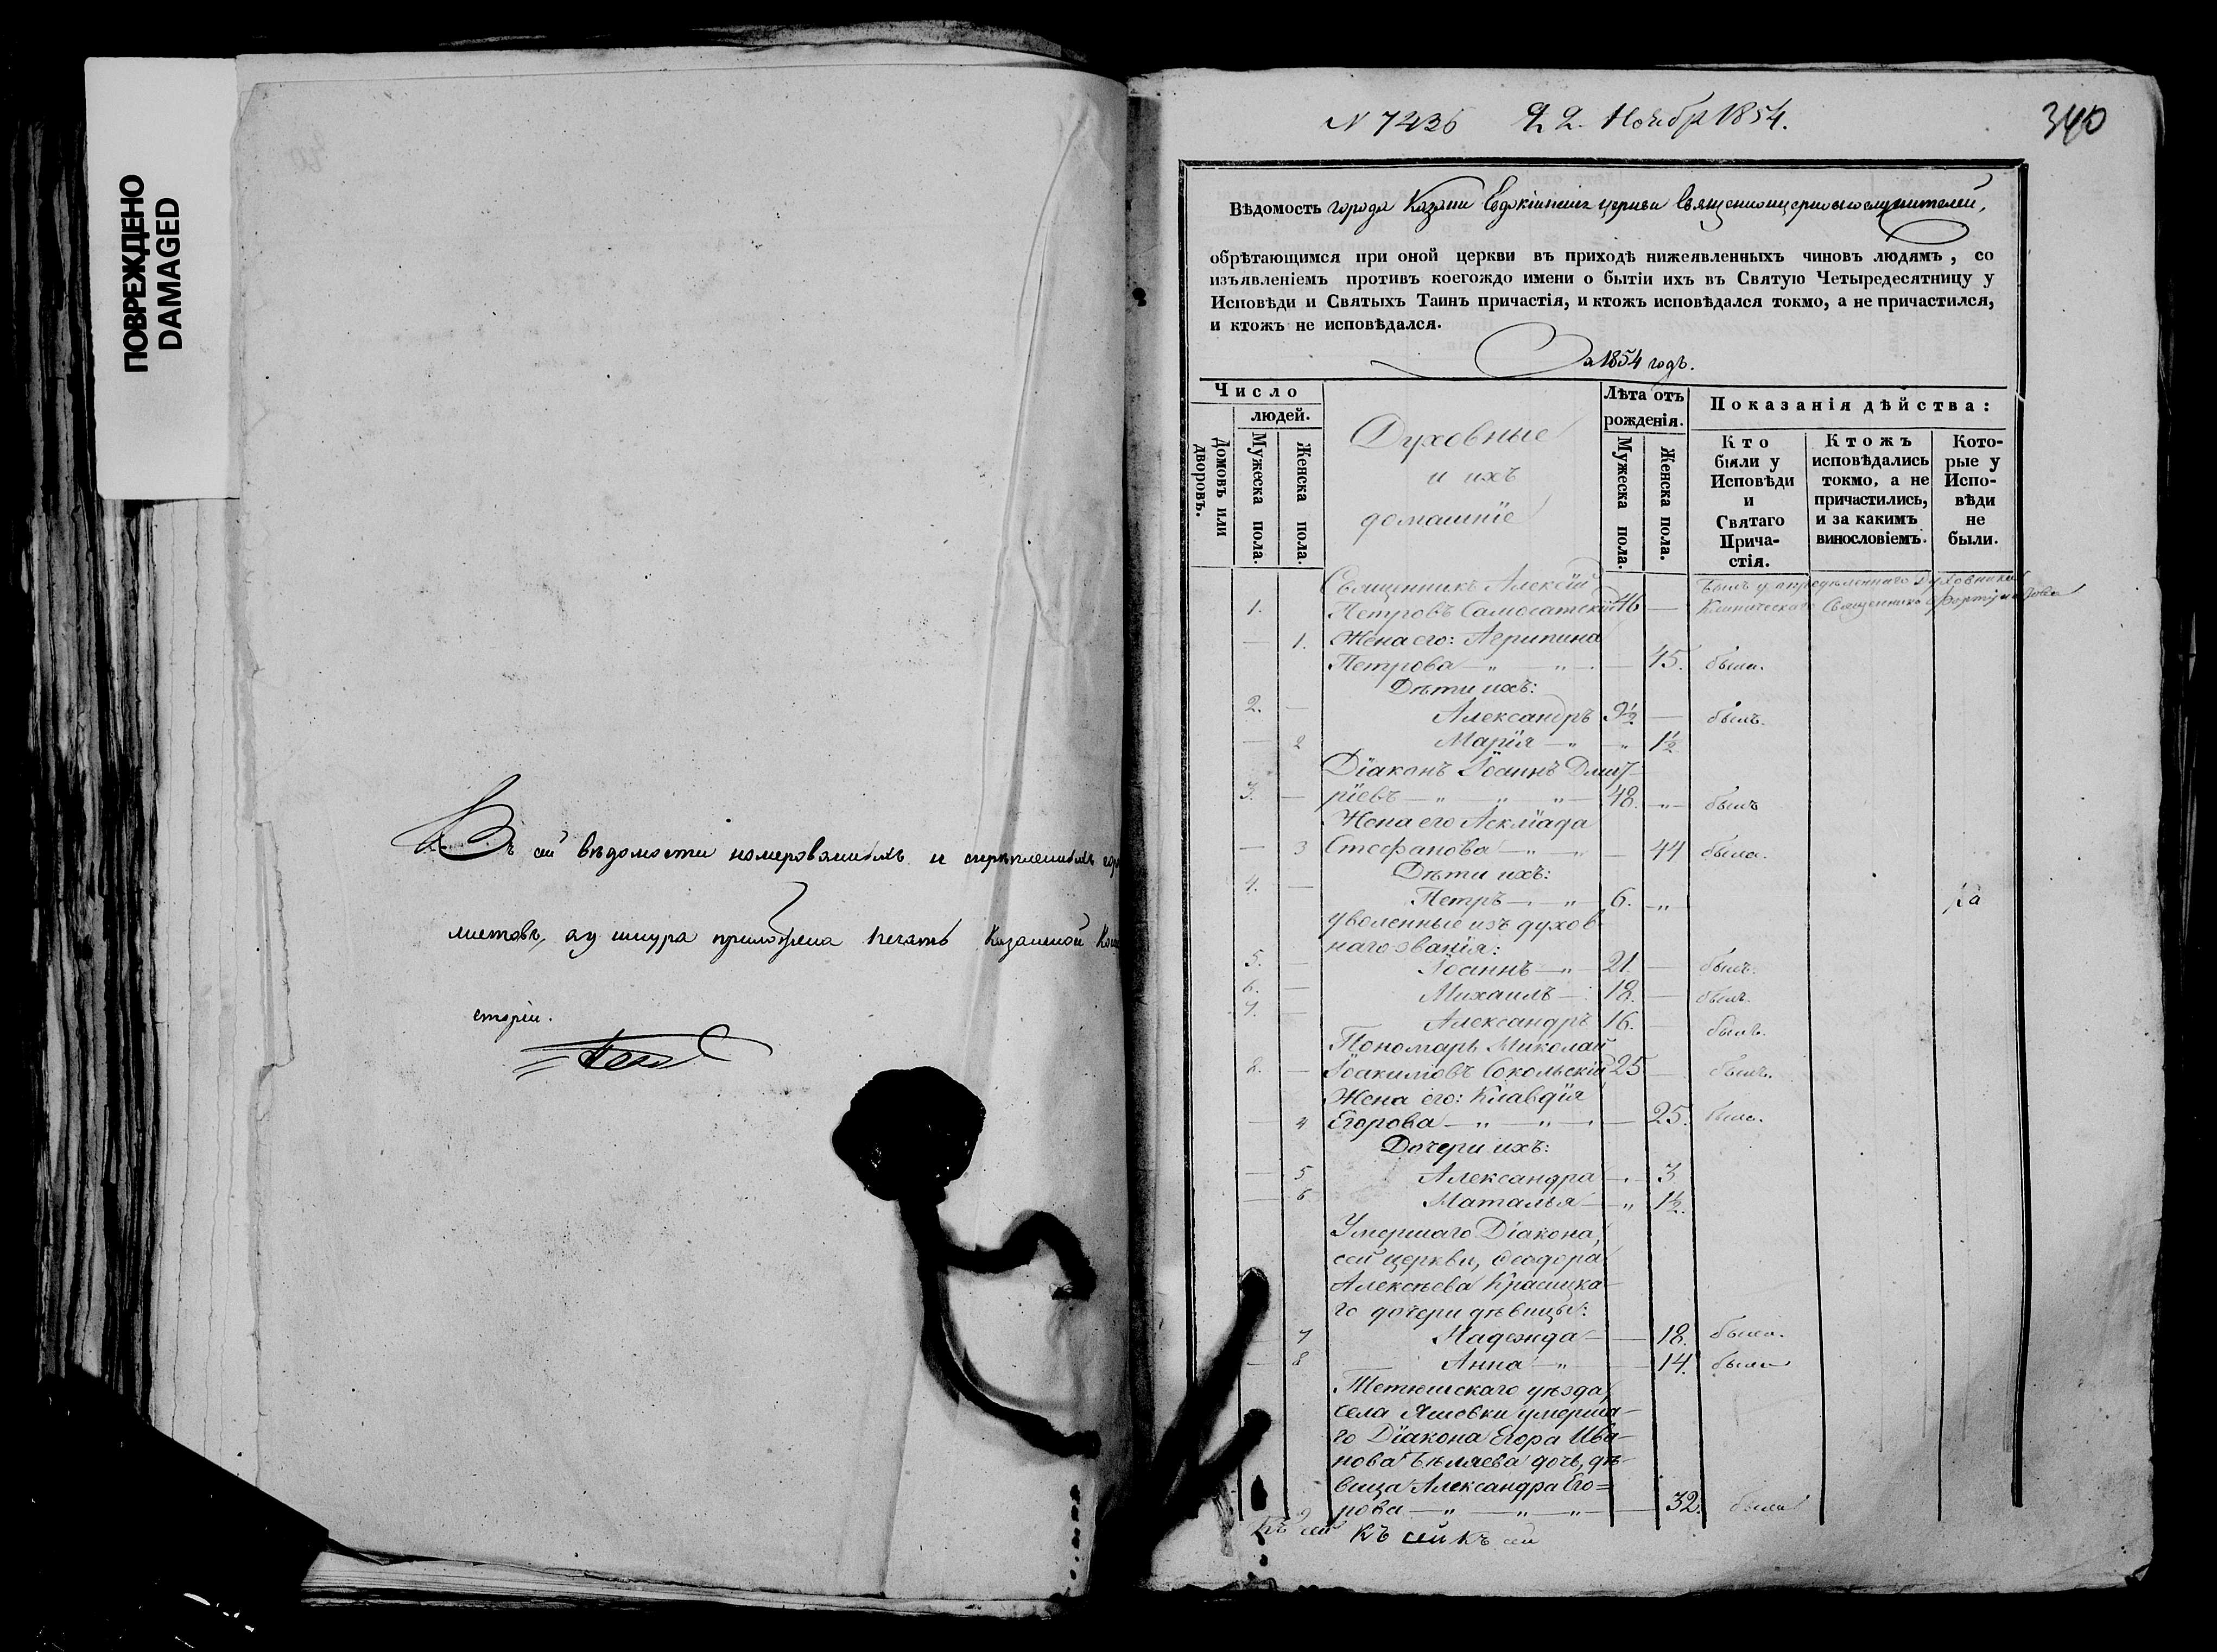 ПОВРЕЖДЕНО
DAMAGED
Въ сей вѣдомости номерованныхъ и скрѣпленныхъ
листовъ, а у шнура приложена печать Казанской
сторіи.
N 7436 22 Ноябр 1854.
340
Вѣдомость города Казани Евдокіинской церкви Священноцерковнослужителей,
обрѣтающимся при оной церкви въ приходѣ нижеявленныхъ чиновъ людямъ, со
изъявленіемъ противъ коегождо имени о бытіи ихъ въ Святую Четыредесятницу у
Исповѣди и Святыхъ Таинъ причастія, и ктожъ исповѣдался токмо, а не причастился,
и ктожъ не исповѣдался.
За 1854 годъ.
Число
людей.
Домовъ или дворовъ.
Мужеска пола.
Женска пола.
Духовные
и ихъ
домашніе
Лѣта отъ
рожденія.
Мужеска пола.
Женска пола.
Показанія дѣйства:
Кто
были у
Исповѣди
и
Святаго
Прича-
стія.
Ктожъ
исповѣдались
токмо, а не
причастились,
и за какимъ
винословіемъ.
Кото-
рые у
Испо-
вѣди
не
были.
Священникъ Алексій Былъ у опредѣленнаго духовника
1. Петровъ Самосатскій 46 — Клиническаго Священника
— 1. Жена его: Агрипина
Петрова — „ — „ — 45. была.
Дѣти ихъ:
2. — Александръ 9½ — былъ.
— 2 Марія — „ — „ — 1½
Діаконъ Іоаннъ Дмит-
3. — ріевъ — „ — „ — „ — 48. — „ — былъ
Жена его Асклїада
— 3 Стефанова — „ — „ — 44 была.
Дѣти ихъ:
4. — Петръ — „ — 6. — „ —
уволенные изъ духов-
наго званія:
5. — Іоаннъ — „ — 21. — былъ.
6. — Михаилъ — 18. — былъ.
7. — Александръ 16. — былъ.
Пономарь Николай
2. — Іоакимовъ Сокольскій 25 — былъ.
Жена его: Клавдія
— 4 Егорова — „ — „ — 25. была.
Дочери ихъ:
— 5 Александра — „ 3
— 6 Наталья — „ 1½.
Умершаго Діакона,
сей церкви, Ѳеодора
Алексѣева Красицка-
го дочери дѣвицы:
— 7 Надежда — — 18. была.
— 8 Анна — „ — 14. была
Тетюшскаго уѣзда,
села Яшовки умерша-
го Діакона Егора Ива-
нова Бѣляева дочь, дѣ-
вица Александра Его=
9 рова — „ — „ — „ — 32. была
Къ сей Къ сей Къ сей